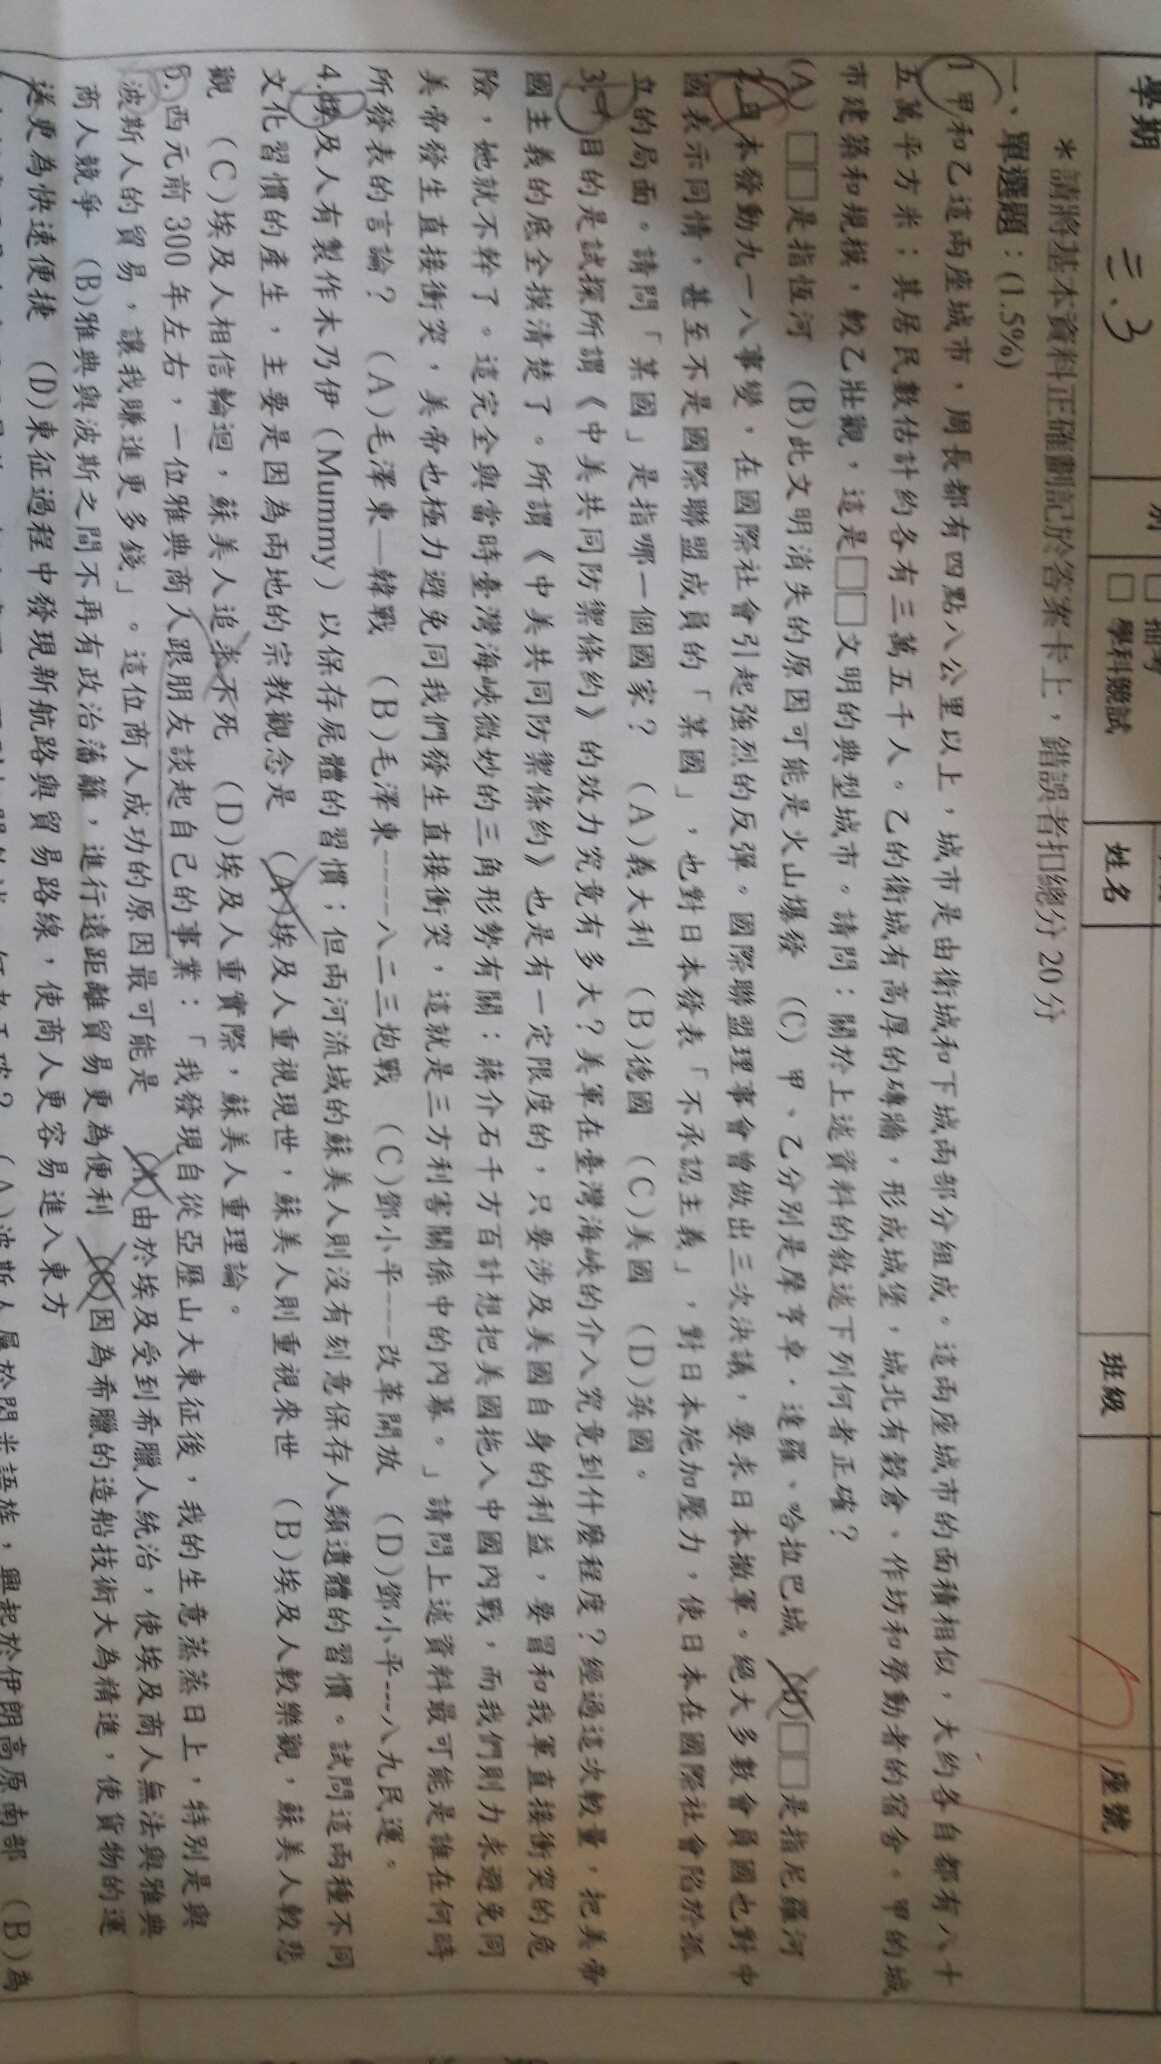 學期 三、3 別 □ □學科競試 姓名 班級 座號
＊請將基本資料正確劃記於答案卡上，錯誤者扣總分 20 分
一、單選題：(1.5%)
1 甲和乙這兩座城市，周長都有四點八公里以上，城市是由衛城和下城兩部分組成。這兩座城市的面積相似，大約各自都有八十
五萬平方米；其居民數估計約各有三萬五千人。乙的衛城有高厚的磚牆，形成城堡，城北有穀倉、作坊和勞動者的宿舍。甲的城
市建築和規模，較乙壯觀，這是□□文明的典型城市。請問：關於上述資料的敘述下列何者正確？
(A) □□是指恆河 (B)此文明消失的原因可能是火山爆發 (C) 甲、乙分別是摩亨卓．達羅、哈拉巴城 (D)□□是指尼羅河
2.日本發動九一八事變，在國際社會引起強烈的反彈。國際聯盟理事會曾做出三次決議，要求日本撤軍。絕大多數會員國也對中
國表示同情，甚至不是國際聯盟成員的「某國」，也對日本發表「不承認主義」，對日本施加壓力，使日本在國際社會陷於孤
立的局面。請問「某國」是指哪一個國家？ (A)義大利 (B)德國 (C)美國 (D)英國。
3.「目的是試探所謂《中美共同防禦條約》的效力究竟有多大？美軍在臺灣海峽的介入究竟到什麼程度？經過這次較量，把美帝
國主義的底全摸清楚了。所謂《中美共同防禦條約》也是有一定限度的，只要涉及美國自身的利益，要冒和我軍直接衝突的危
險，她就不幹了。這完全與當時臺灣海峽微妙的三角形勢有關：蔣介石千方百計想把美國拖入中國內戰，而我們則力求避免同
美帝發生直接衝突，美帝也極力避免同我們發生直接衝突，這就是三方利害關係中的內幕。」請問上述資料最可能是誰在何時
所發表的言論？ (A)毛澤東—韓戰 (B)毛澤東----八二三炮戰 (C)鄧小平---改革開放 (D)鄧小平---八九民運。
4.埃及人有製作木乃伊（Mummy）以保存屍體的習慣；但兩河流域的蘇美人則沒有刻意保存人類遺體的習慣。試問這兩種不同
文化習慣的產生，主要是因為兩地的宗教觀念是 (A)埃及人重視現世，蘇美人則重視來世 (B)埃及人較樂觀，蘇美人較悲
觀 (C)埃及人相信輪迴，蘇美人追求不死 (D)埃及人重實際，蘇美人重理論。
5.西元前 300 年左右，一位雅典商人跟朋友談起自己的事業：「我發現自從亞歷山大東征後，我的生意蒸蒸日上，特別是與
波斯人的貿易，讓我賺進更多錢」。這位商人成功的原因最可能是 (A)由於埃及受到希臘人統治，使埃及商人無法與雅典
商人競爭 (B)雅典與波斯之間不再有政治藩籬，進行遠距離貿易更為便利 (C)因為希臘的造船技術大為精進，使貨物的運
送更為快速便捷 (D)東征過程中發現新航路與貿易路線，使商人更容易進入東方
(A)波斯人屬於閃米語族，興起於伊朗高原南部 (B)為